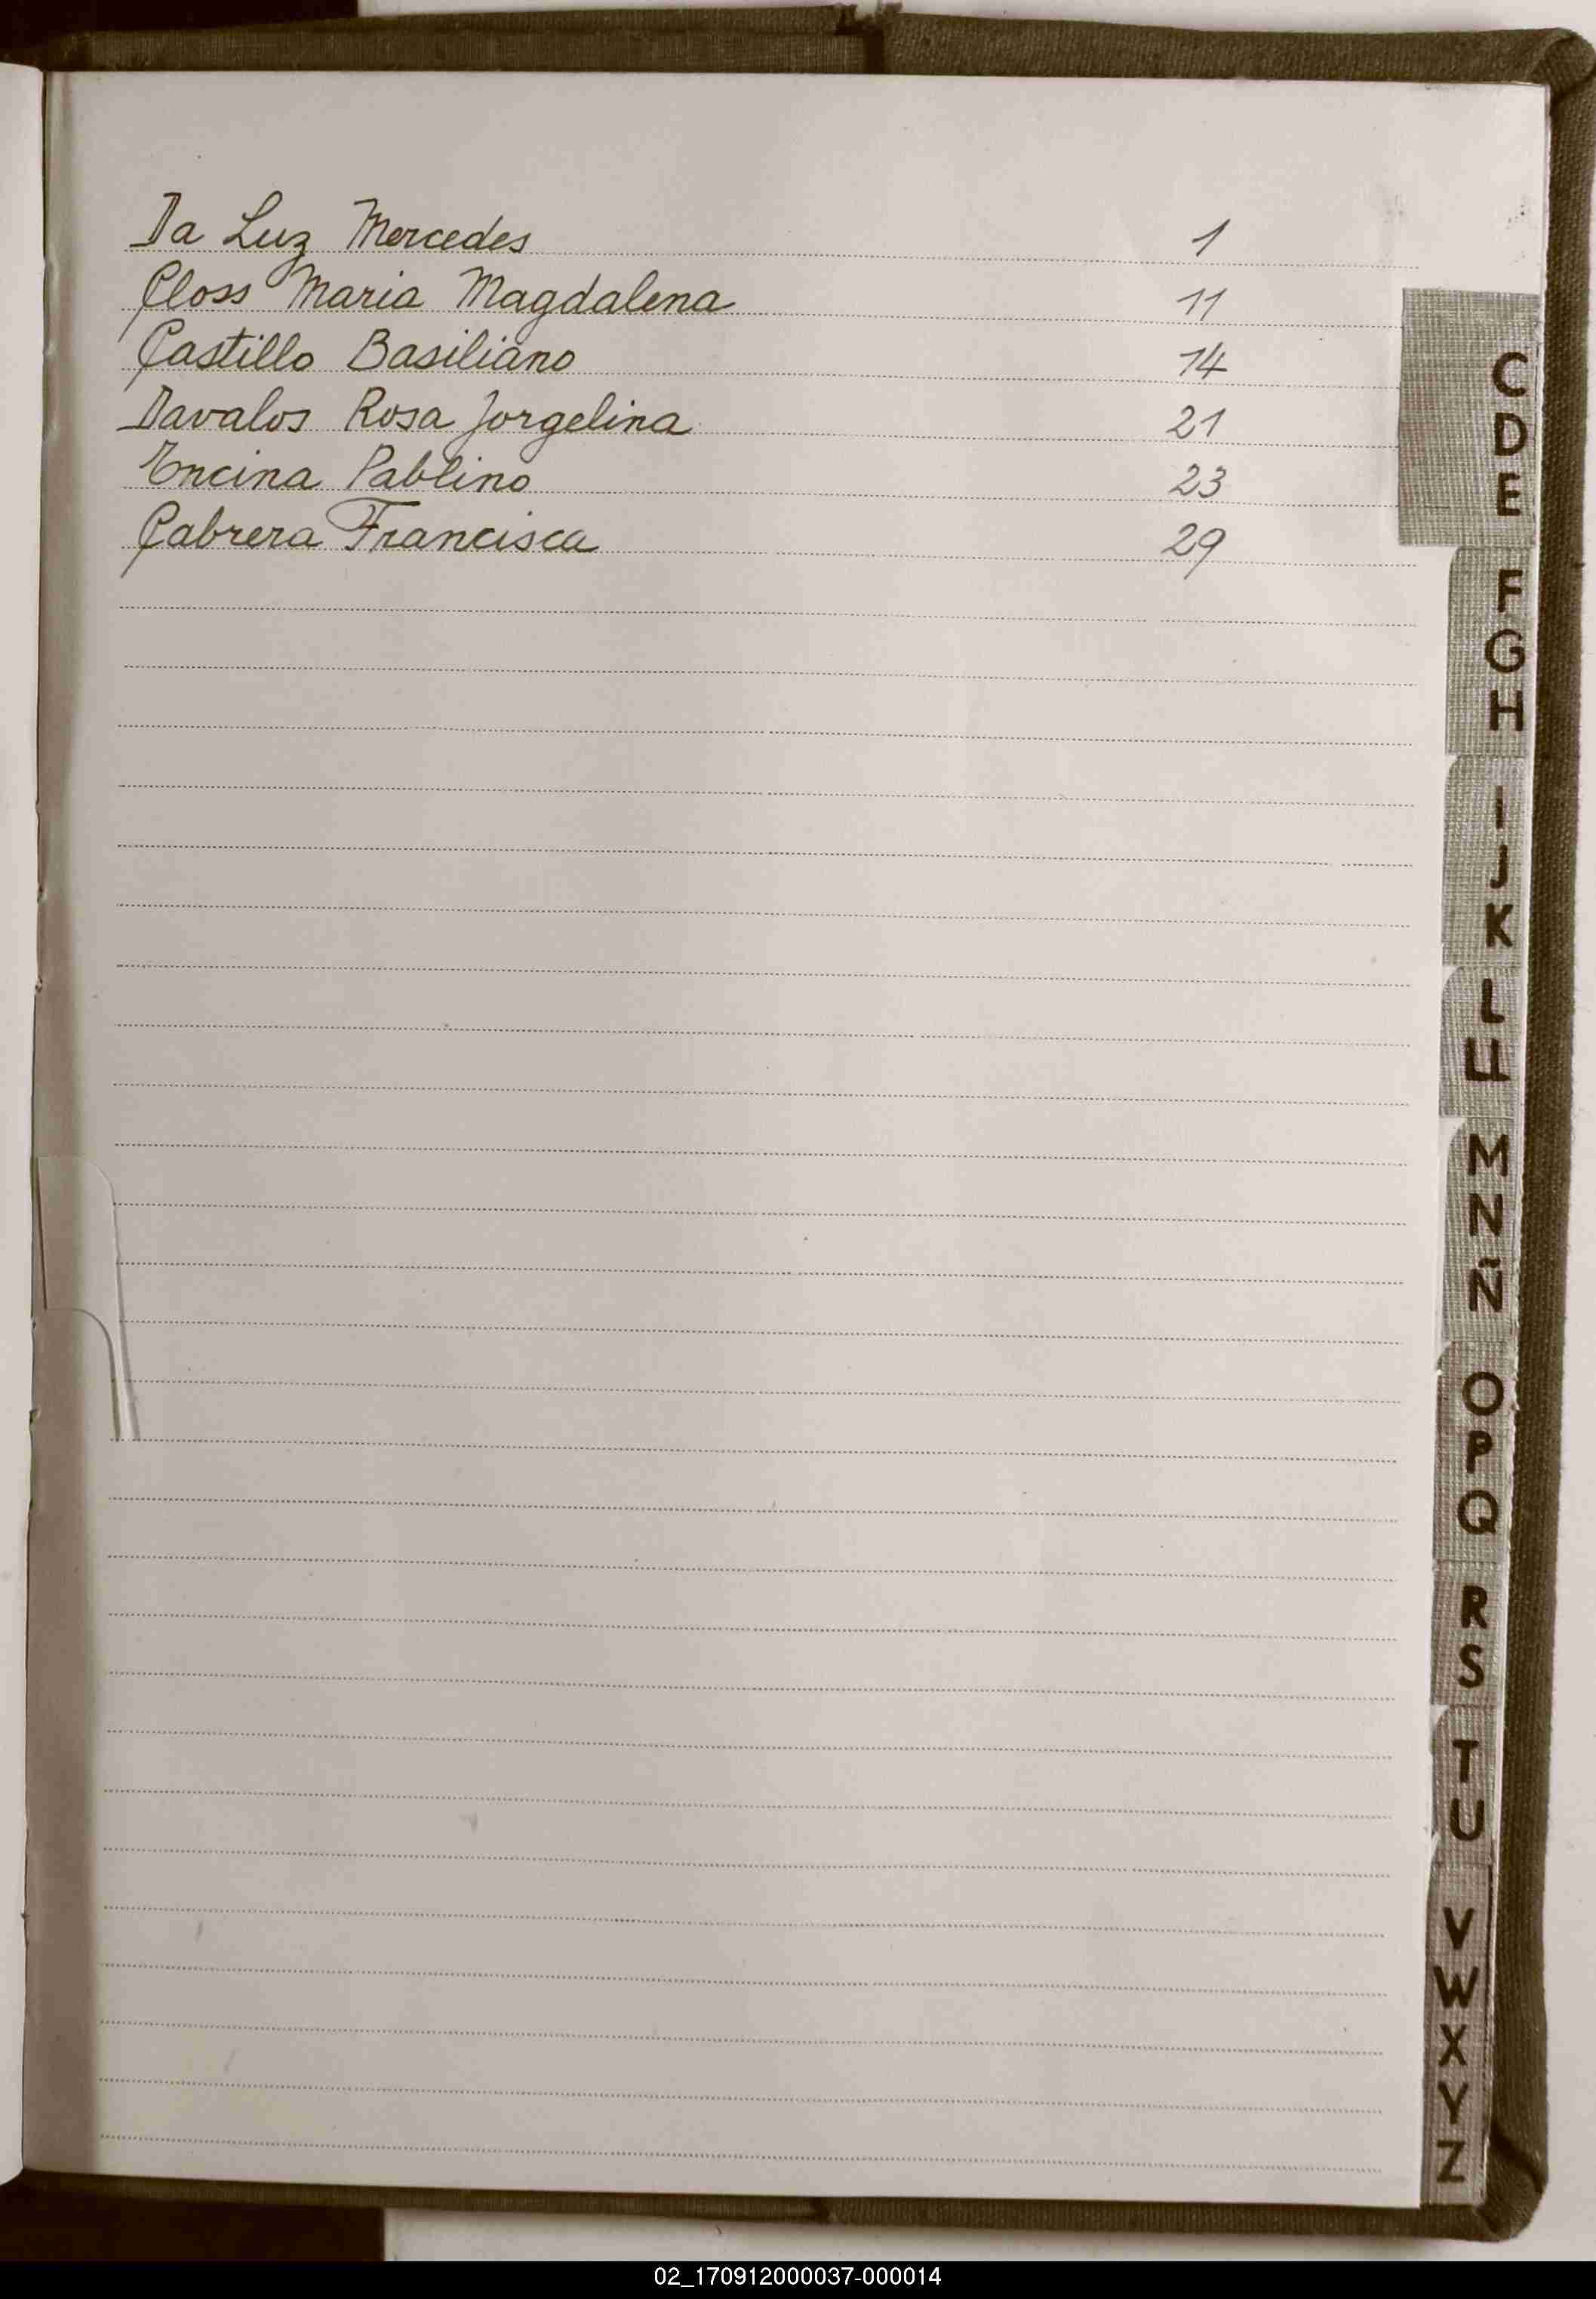 Da Luz Mercedes 1
Closs Maria Magdalena 11
Castillo Basiliano 14
Davalos Rosa Jorgelina 21
Encina Pablino 23
Cabrera Francisca 29
C
D
E
F
G
H
I
J
K
L
LL
M
N
Ñ
O
P
Q
R
S
T
U
V
W
X
Y
Z
02_170912000037-000014